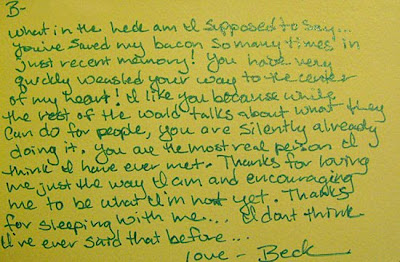 B-
What in the heck am I supposed to say...
You've saved my bacon so many times in
just recent memory! You have very
quickly weasled your way to the center
of my heart! I like you because while
the rest of the world talks about what they
can do for people, you are silently already
doing it. You are the most real person I
think I have ever met. Thanks for loving
me just the way I am and encouraging
me to be what I'm not yet. Thanks
for sleeping with me.... I dont think
I've ever said that before...
love - Beck